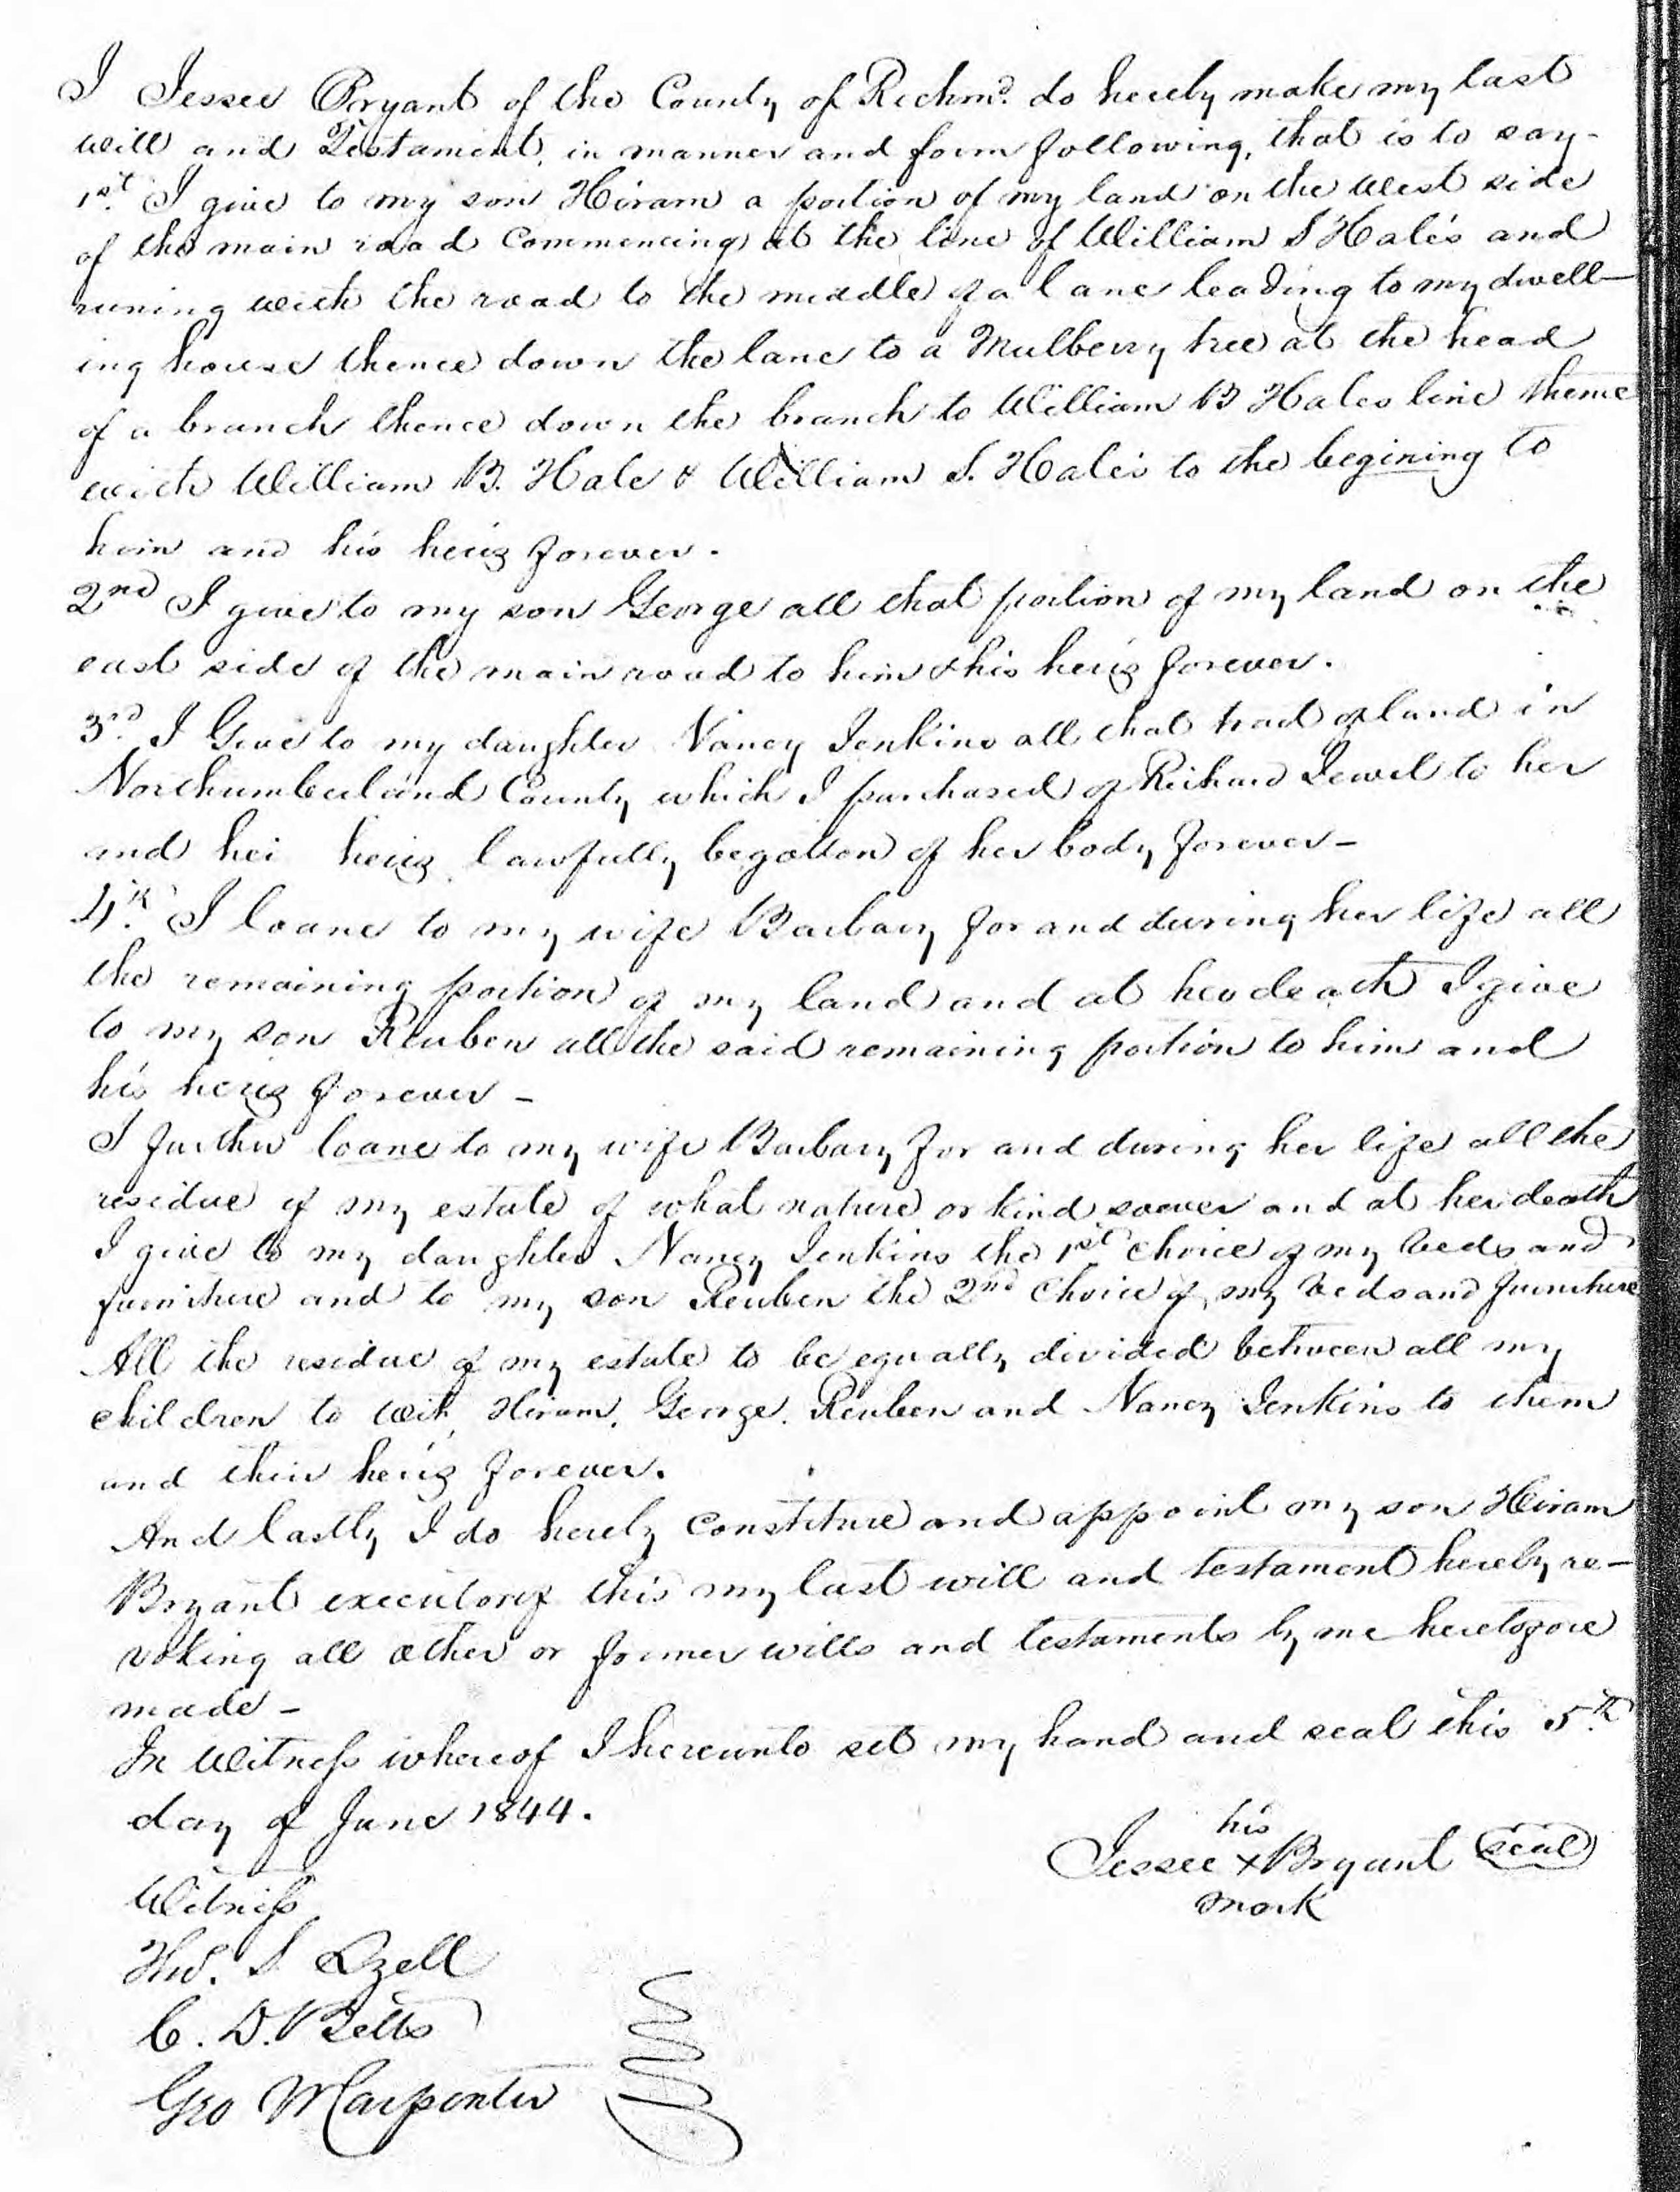 I Jessee Bryant of the County of Richmd. do hereby make my last
will and Testament, in manner and form following, that is to say-
1st. I give to my son Hiram a portion of my land on the West side
of the main road Commencing at the line of William S Hale's and
runing with the road to the middle of a lane leading to my dwell-
ing house thence down the lane to a Mulberry tree at the head
of a branch thence down the branch to William B Hales line thence
with William B. Hale & William S. Hale's to the begining to
him and his heirs forever.
2nd I give to my son George all that portion of my land on the
east side of the main road to him & his heirs forever.
3rd. I Give to my daughter Nancy Jenkins all that tract of land in
Northumberland County which I purchased of Richard Jewel to her
and her heirs lawfully begotten of her body forever-
4th. I loane to my wife Barbary for and during her life all
the remaining portion of my land and at her death I give
to my son Reuben all the said remaining portion to him and
his heirs forever-
I further loane to my wife Barbary for and during her life all the
residue of my estate of what nature or kind soever and at her death
I give to my daughter Nancy Jenkins the 1st choice of my beds and
furniture and to my son Reuben the 2nd Choice of my beds and furniture
All the residue of my estate to be equally divided between all my
children to wit, Hiram, George, Reuben and Nancy Jenkins to them
and their heirs forever.
And lastly I do herely Constitute and appoint my son Hiram
Bryant executor of this my last will and testament hereby re-
voking all other or former wills and testaments by me heretofore
made-
In Witness whereof I hereunto set my hand and seal this 5th.
day of June 1844.
his
Jessee x Bryant seal
mark
Witness
Thd. S. Ezell
C. D. Betts
Geo W Carpenter